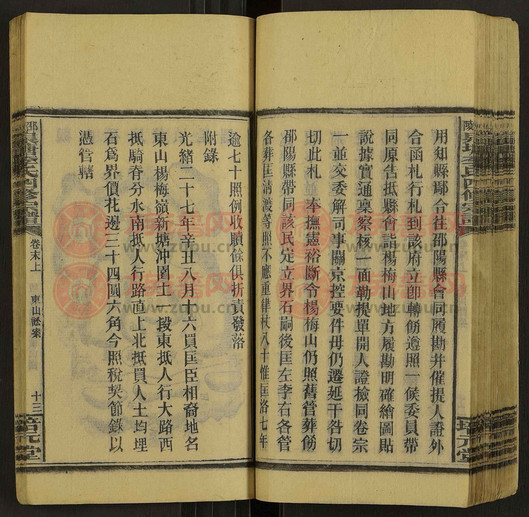 用知縣鄢令往邵陽縣會同履勘并催提人證外
合函札行札到該府立即轉飭遵照一候委員帶
同原告抵縣會詣楊梅山地方履勘明確繪圖貼
說據實通稟察核一面勒提單開人證撿同卷宗
一並交委解司事關京控要件毋仍遷延干咎切
切此札　奉撫憲裕斷令楊梅山仍照舊管葬飭
邵陽縣帶同該民定立界石嗣後匡左李右各管
各葬匡清渡等照不應重律杖八十惟匡路七年
逾七十照例收贖餘俱折責發落
附錄
光緒二十七年辛丑八月十六買匡臣相裔地名
東山楊梅嶺新塘沖園土一段東抵人行大路西
抵騎脊分水南抵人行路直上北抵買人土均埋
石爲界價花邊三十四圓六角今照稅契節錄以
憑管轄
卷末上
東山訟案
十三
培元堂